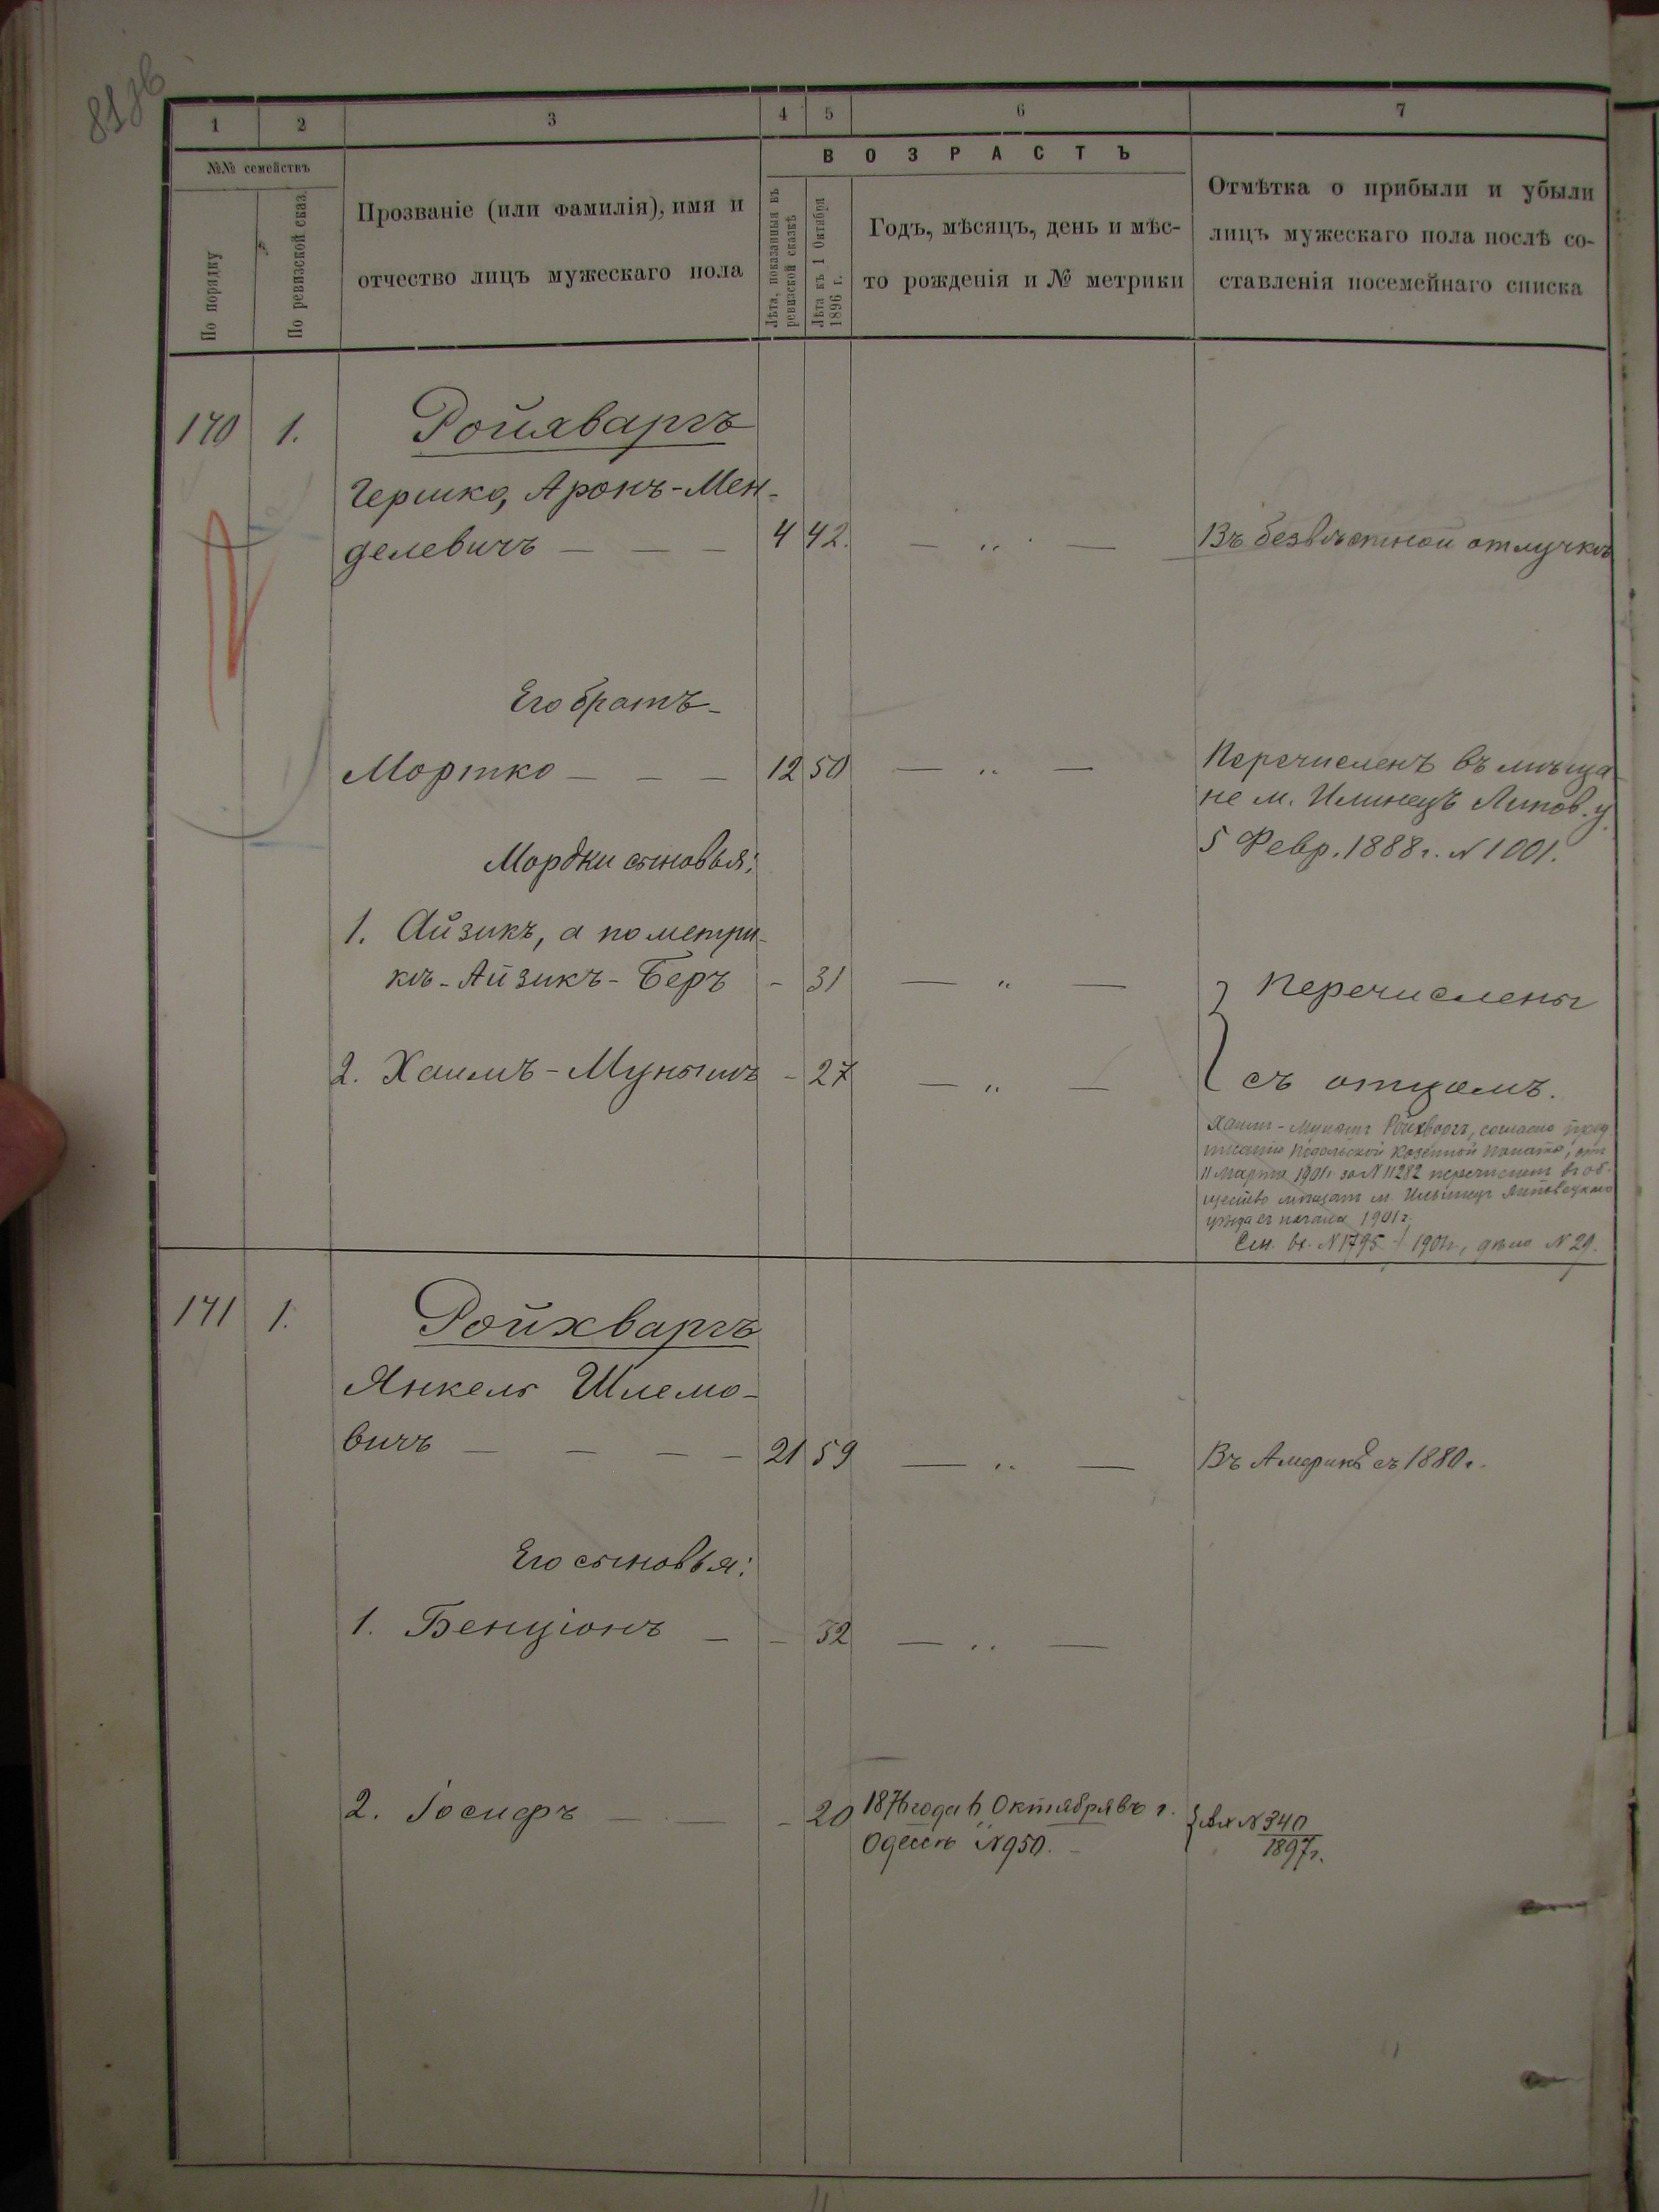 1 2 3 4 5 6 7
№№ семействъ
По порядку
По ревизской сказ.
Прозваніе (или фамилія), имя и
отчество лицъ мужескаго пола
ВОЗРАСТЪ
Лѣта, показанныя въ
ревизской сказкѣ
Лѣта къ 1 Октября
1896 г.
Годъ, мѣсяцъ, день и мѣс-
то рожденія и № метрики
Отмѣтка о прибыли и убыли
лицъ мужескаго пола послѣ со-
ставленія посемейнаго списка
170 1. Ройхваргъ
Гершко, Аронъ-Мен-
делевичъ — — — 4 42. — „ — Въ безвѣстной отлучкѣ
Его братъ-
Мортко — — — 12 50 — „ — Перечисленъ въ мѣща
не м. Илинецъ Липов. у.
5 Февр. 1888 г. № 1001.
Мордки сыновья:
1. Айзикъ, а по метри-
кѣ-Айзикъ-Беръ - 31 — „ — Перечислены
2. Хаимъ-Мунышъ - 27 — „ — съ отцомъ.
Хаимъ-Мунышъ Ройхваргъ, согласно пред
писанію Подольской Казенной Палаты, отъ
11 Марта 1901 г. за № 11282 перечисленъ въ об-
щество мѣщанъ м. Ильинцы Липовецкаго
уѣзда съ начала 1901 г.
См. вх. № 1795 / 1901 г., дѣло № 29.
171 1. Ройхваргъ
Янкель Шлемо-
вичъ — — — - 21 59 — „ — Въ Америкѣ съ 1880 г.
Его сыновья:
1. Бенціонъ — - 32 — „ —
2. Іосифъ — — - 20 1876 года 6 Октября въ г.
Одессѣ № 950. № 340
1897 г.